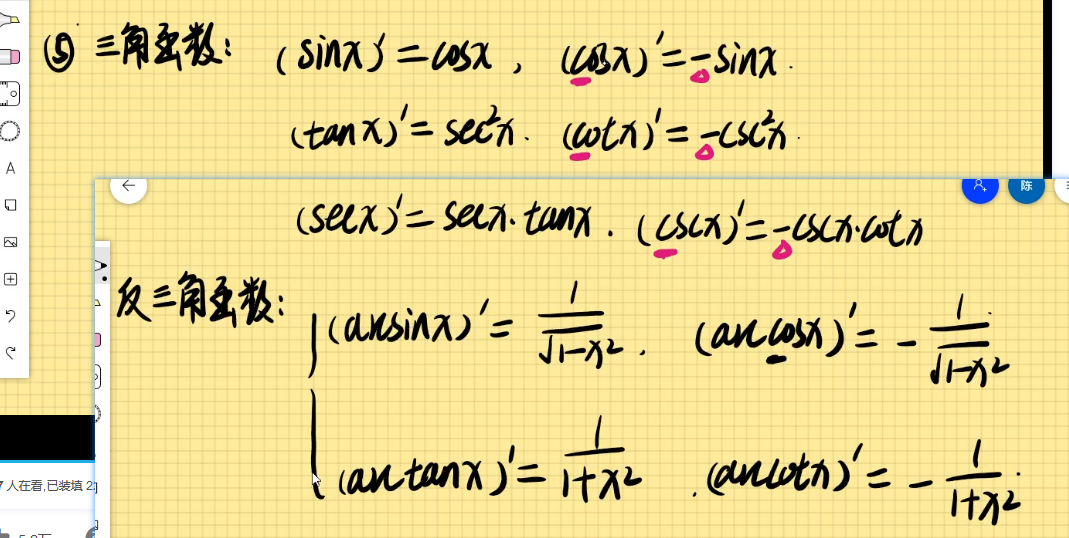 ⑤ 三角函数: (sinx)′=cosx, (cosx)′=-sinx.
(tanx)′=sec²x. (cotx)′=-csc²x.
陈
(secx)′=secx·tanx. (cscx)′=-cscx·cotx
反三角函数: (arcsinx)′=1/√1-x². (arccosx)′=-1/√1-x²
(arctanx)′=1/1+x². (arccotx)′=-1/1+x²
人在看,已装填 2